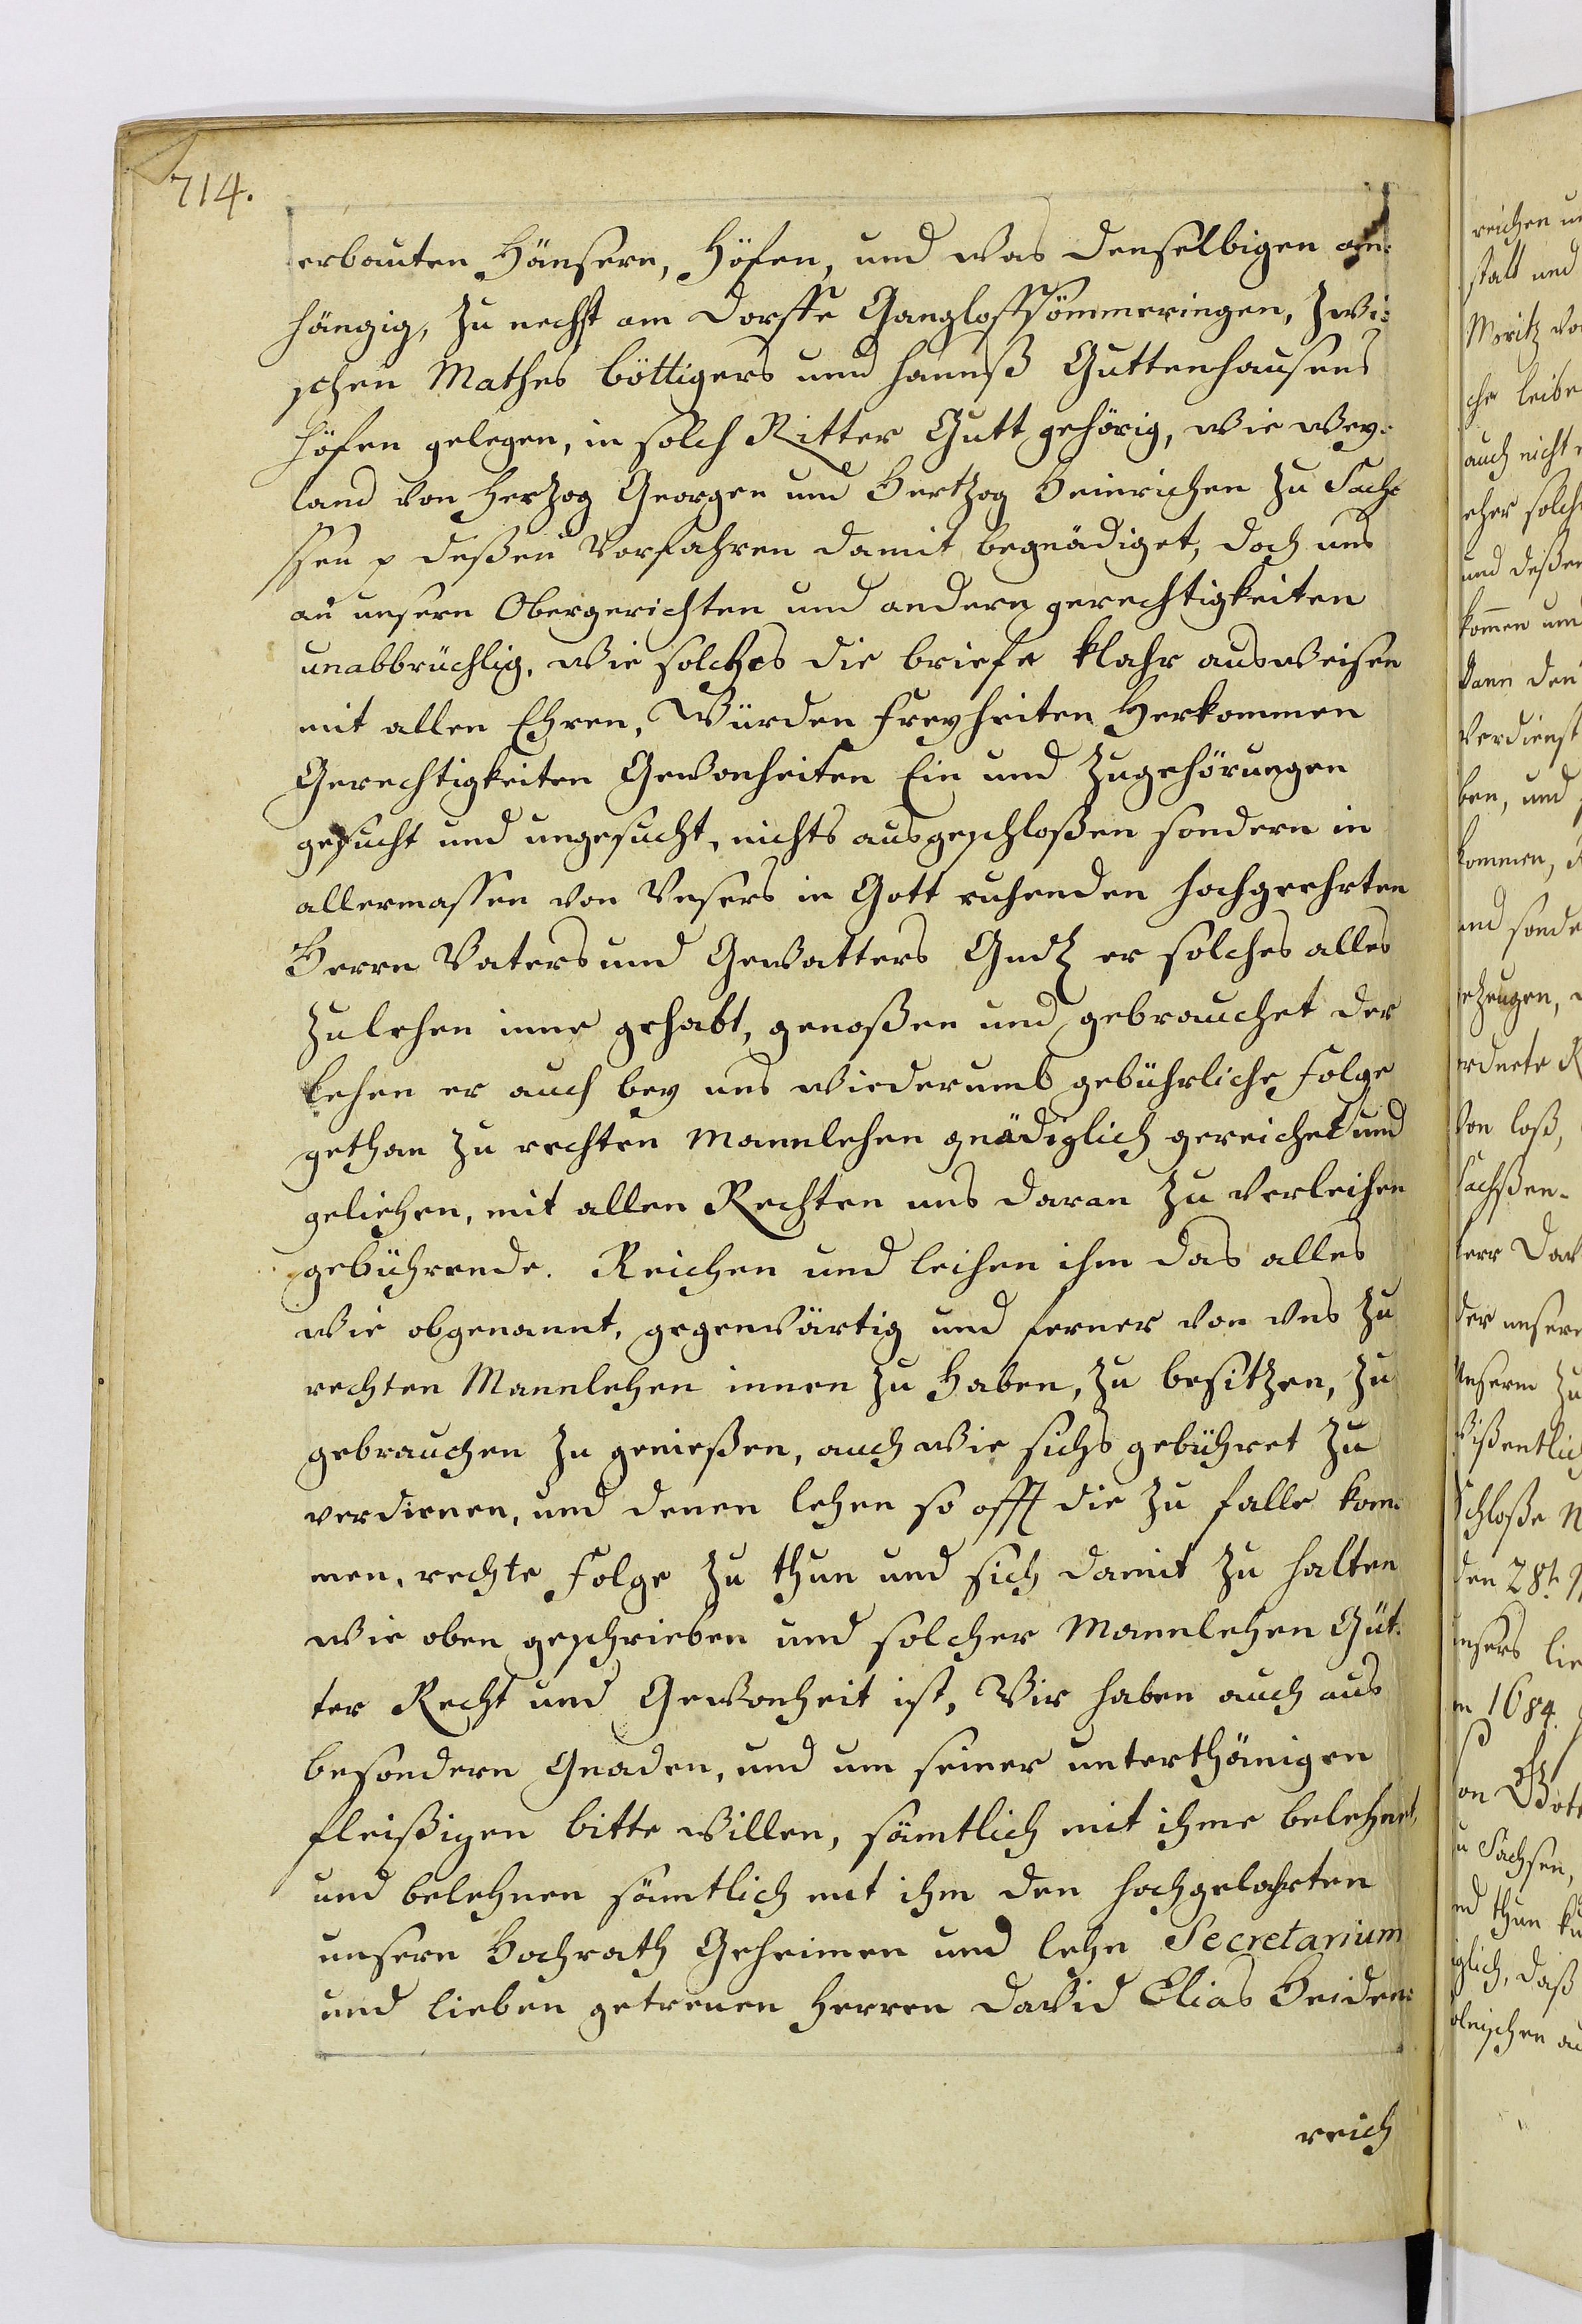 714.
erbauten Häusern, Höfen, und was denselbigen an-
hängig, zu nechst am Dorffe Ganglofssömmeringen, zwi-
schen Mathes Böttigers und Hannß Guttenhausens
Höfen gelegen, in solch Ritter Gutt gehörig, wie wey-
land von Herzog Georgen und Hertzog Heinrichen zu Sach-
ssen p deßen Vorfahren damit begnädiget, doch uns
an unsern Obergerichten und andern gerechtigkeiten
unabbrüchlig, wie solches die briefe klahr ausweisen
mit allen Ehren, Würden Freyheiten Herkommen
Gerechtigkeiten Gewonheiten Ein und Zugehörungen
gesucht und ungesucht, nichts ausgeschloßen sondern in
allermassen von Unsers in Gott ruhenden hochgeehrten
Herrn Vaters und Gevatters Gndl er solches alles
zulehen inne gehabt, genoßen und gebrauchet der
Lehen er auch bey uns wiederumb gebührliche Folge
gethan zu rechten Mannlehen gnädiglich gereichet und
geliehen, mit allen Rechten uns daran zu verleihen
gebührende. Reichen und leihen ihm das alles
wie obgenannt, gegenwärtig und ferner von uns zu
rechten Mannlehen innen zu haben, zu besitzen, zu
gebrauchen zu genießen, auch wie sichs gebühret zu
verdienen, und denen Lehen so offt die zu falle kom-
men, rechte Folge zu thun und sich damit zu halten
wie oben geschrieben und solcher Mannlehen Güt-
ter Recht und Gewonheit ist, Wir haben auch aus
besondern Gnaden, und um seiner unterthänigen
fleißigen bitte willen, sämtlich mit ihme belehnet,
und belehnen sämtlich mit ihm den Hochgelahrten
unsern Hochrath Geheimen und Lehn Secretarium
und lieben getreuen Herren David Elias Heiden-
reich